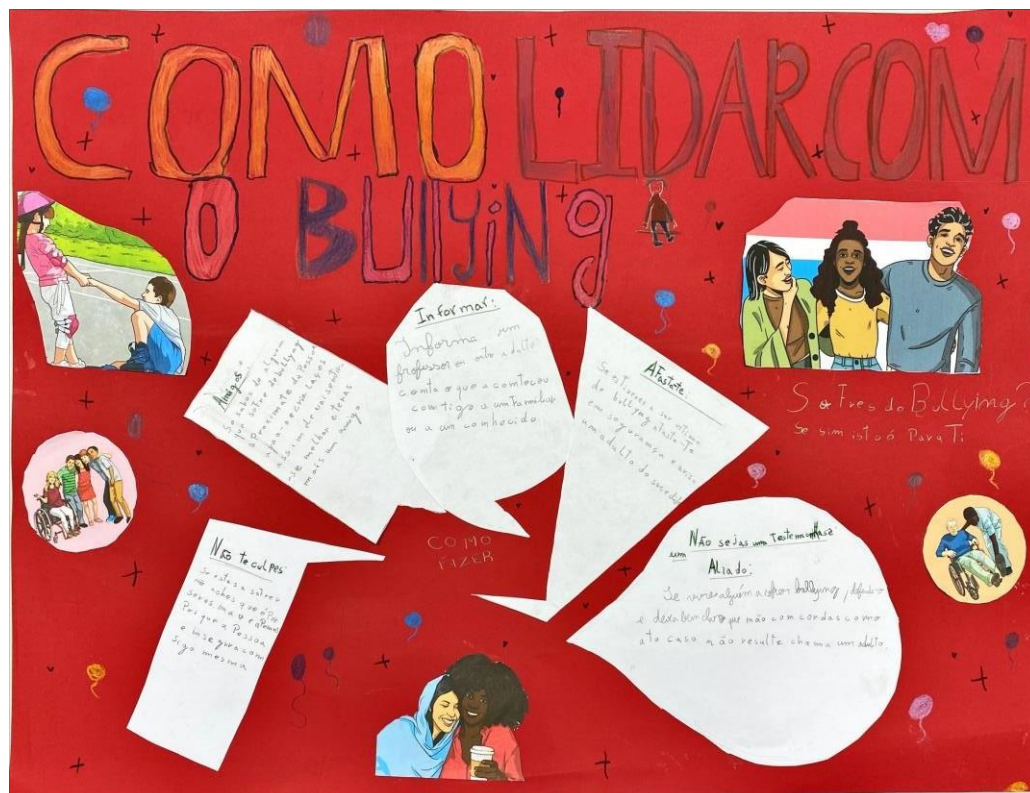 COMO LIDAR COM
O BUllYiNg
Amigos
Se sabes de alguém
que sofre de bullying
aproximate da Pessoa
e cria laços
assim ele vai sentir-
-se melhor e tens
mais um amigo
Informar:
Informa um
professor ou outro adulto
conta o que aconteceu
contigo a um familiar
ou a um conhecido.
Afastate:
Se estiveres a ser vitima
de bullying afasta-te
em segurança e avisa
um adulto do sucedido
Sofres de Bullying?
Se sim isto é Para Ti
COMO
FIZER
Não te culpes
Se estas a sofrer
não aches que é Por
seres ma
Porque a Pessoa
é insegura com
sigo mesma
Não sejas uma testemunha sê
um Aliado:
Se vires alguém a sofrer bullying, defende-o
e deixa bem claro que não concordas com o
ato caso não resulte chama um adulto.